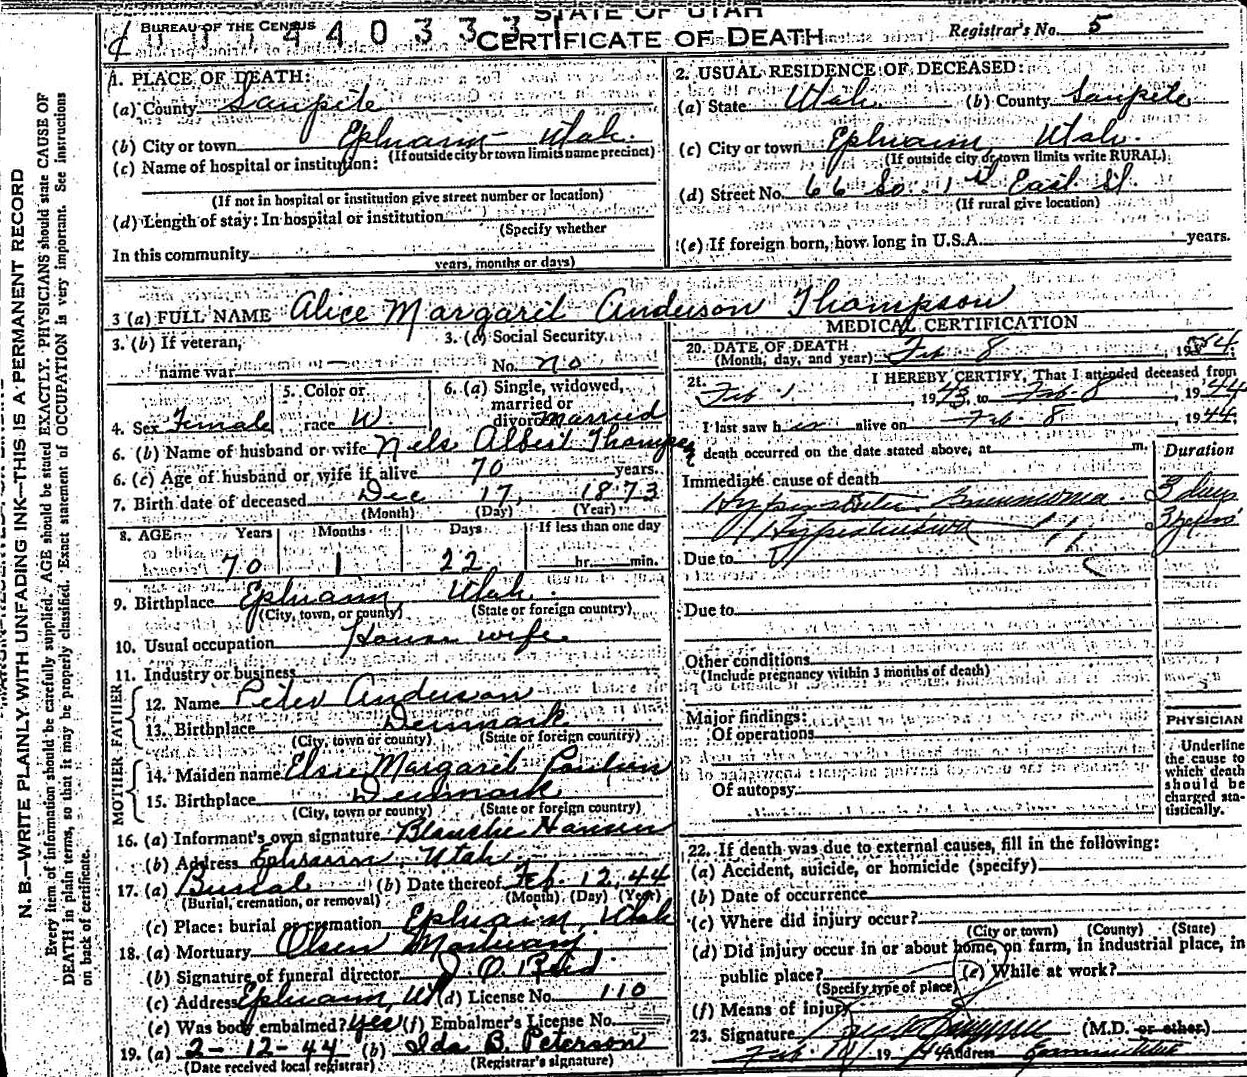 STATE OF UTAH
BUREAU OF THE CENSUS
4 4 0 3 3 3
CERTIFICATE OF DEATH
Registrar's No. 5
1. PLACE OF DEATH:
(a) County Sanpete
(b) City or town Ephraim Utah.
(If outside city or town limits name precinct)
(c) Name of hospital or institution:
(If not in hospital or institution give street number or location)
(d) Length of stay: In hospital or institution
(Specify whether
In this community
years, months or days)
2. USUAL RESIDENCE OF DECEASED:
(a) State Utah (b) County Sanpete
(c) City or town Ephraim, Utah.
(If outside city or town limits write RURAL)
(d) Street No. 66 So. 1st East St.
(If rural give location)
(e) If foreign born, how long in U.S.A. years.
3 (a) FULL NAME Alice Margaret Anderson Thompson
3. (b) If veteran,
name war —
3. (c) Social Security
No. no
4. Sex Female
5. Color or
race W.
6. (a) Single, widowed,
married or
divorced Married
6. (b) Name of husband or wife Nels Albert Thompson
6. (c) Age of husband or wife if alive 70 years.
7. Birth date of deceased Dec 17, 1873
(Month) (Day) (Year)
8. AGE Years Months Days If less than one day
70 1 22 hr. min.
9. Birthplace Ephraim Utah.
(City, town, or county) (State or foreign country)
10. Usual occupation House wife
11. Industry or business
FATHER
12. Name Peter Anderson
13. Birthplace Denmark
(City, town or county) (State or foreign country)
MOTHER
14. Maiden name Elsie Margaret
15. Birthplace Denmark
(City, town or county) (State or foreign country)
16. (a) Informant's own signature Blanche Hansen
(b) Address Ephraim, Utah
17. (a) Burial (b) Date thereof Feb. 12, 44
(Burial, cremation, or removal) (Month) (Day) (Year)
(c) Place: burial or cremation Ephraim, Utah
18. (a) Mortuary Olsen Mortuary
(b) Signature of funeral director
(c) Address Ephraim, Ut (d) License No. 110
(e) Was body embalmed? yes (f) Embalmer's License No.
19. (a) 2-12-44 (b) Ida B. Peterson
(Date received local registrar) (Registrar's signature)
MEDICAL CERTIFICATION
20. DATE OF DEATH
(Month, day, and year) Feb 8, 1944
21. I HEREBY CERTIFY, That I attended deceased from
Feb. 1 1943, to Feb. 8, 1944
I last saw her alive on Feb. 8 1944,
death occurred on the date stated above, at m.
Duration
Immediate cause of death
Hypostatic Pneumonia 3 days
Hypertension 3 years
Due to
Due to
Other conditions
(Include pregnancy within 3 months of death)
Major findings:
Of operations
Of autopsy
PHYSICIAN
Underline
the cause to
which death
should be
charged sta-
tistically.
22. If death was due to external causes, fill in the following:
(a) Accident, suicide, or homicide (specify)
(b) Date of occurrence
(c) Where did injury occur?
(City or town) (County) (State)
(d) Did injury occur in or about home, on farm, in industrial place, in
public place? (e) While at work?
(Specify type of place)
(f) Means of injury
23. Signature (M.D. or other)
Feb. 19 44 Address
N. B.—WRITE PLAINLY WITH UNFADING INK—THIS IS A PERMANENT RECORD
Every item of information should be carefully supplied. AGE should be stated EXACTLY. PHYSICIANS should state CAUSE OF
DEATH in plain terms, so that it may be properly classified. Exact statement of OCCUPATION is very important. See instructions
on back of certificate.